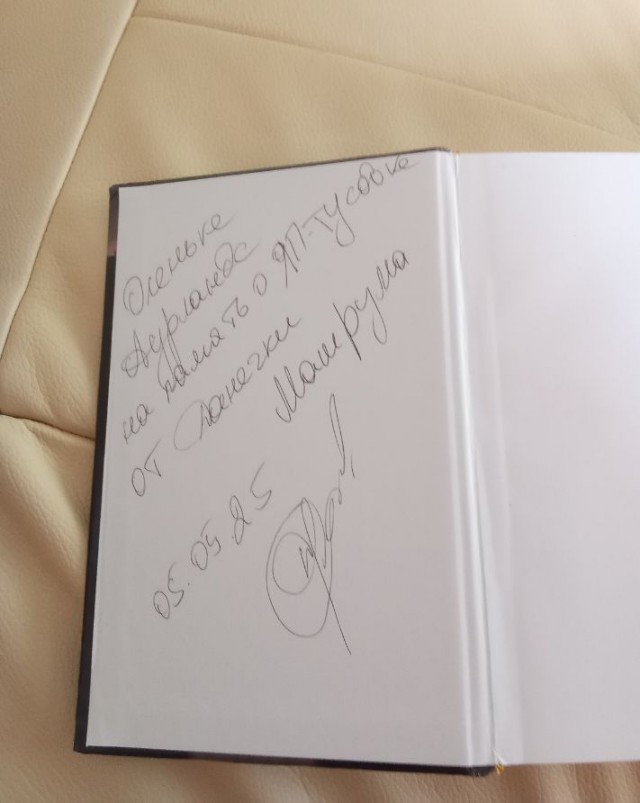 Оленьке
Аурландс
на память о ЯП-тусовке
от Санечки Машрума
05.05.25